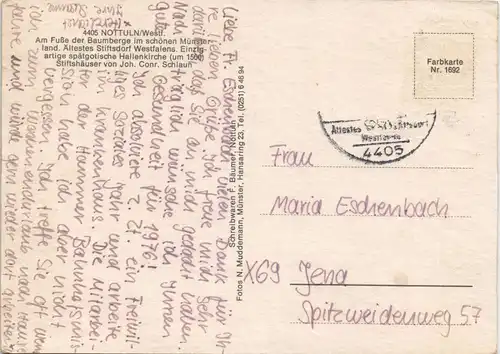 4405 NOTTULN/Westf.
Am Fuße der Baumberge im schönen Münster-
land. Ältestes Stiftsdorf Westfalens. Einzig-
artige spätgotische Hallenkirche (um 1500)
Stiftshäuser von Joh. Conr. Schlaun
Liebe Fr. Eschenbach! Vielen Dank für Ih-
re lieben Grüße. Ich freue mich sehr
darüber, daß Sie an mich gedacht haben.
Nachträglich wünsche ich Ihnen
Gesundheit für 1976!
Ich absolviere z. Zt. ein freiwil-
liges Soziales Jahr und arbeite
im Krankenhaus. Die Mitarbei-
ter der Hammer Bahnhofsmis-
sion habe ich aber nicht
vergessen. Ich treffe Sie oft wenn
ich zum Wochenendurlaub nach Hause
fahre und würde gern wieder dort arbeiten.
Ihre
Schreibwaren F. Bäumer, Nottuln
Fotos N. Muddemann, Münster, Hansaring 23, Tel. (0251) 6 46 94
Farbkarte
Nr. 1692
Ältestes Stiftsdorf
Westfalens
4405
Frau
Maria Eschenbach
X69 Jena
Spitzweidenweg 57